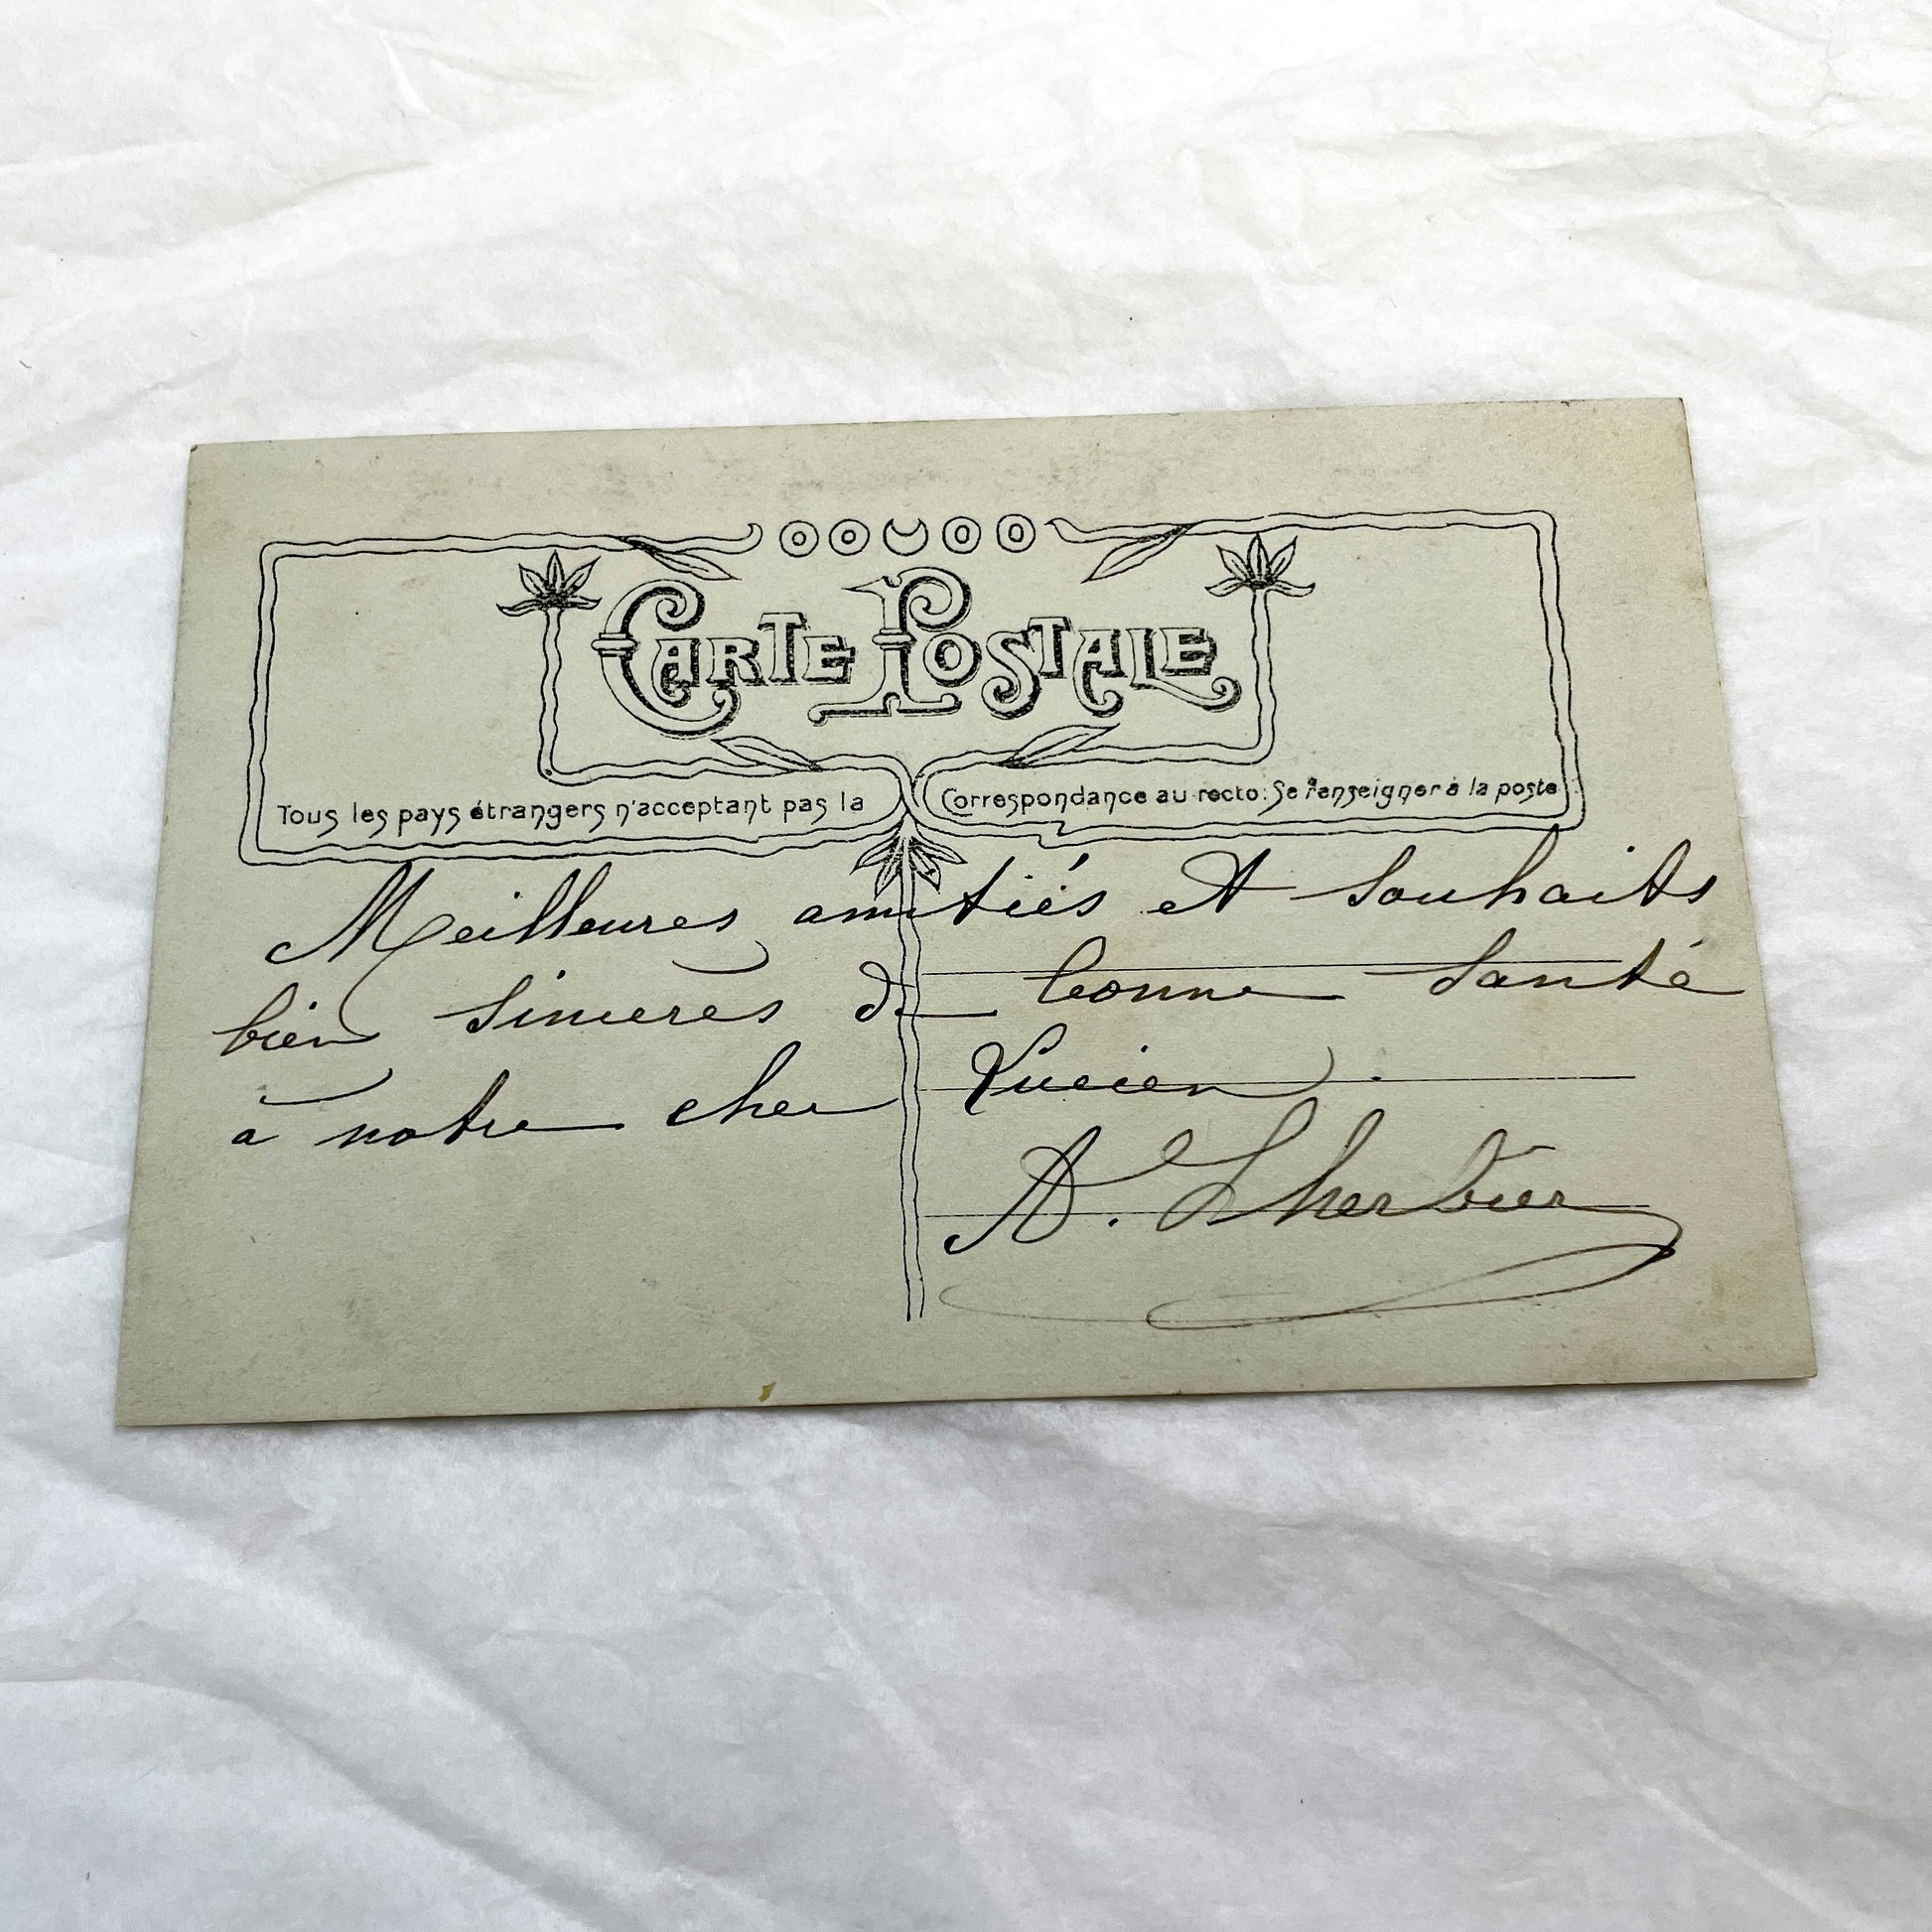 CARTE POSTALE
Tous les pays étrangers n'acceptant pas la Correspondance au recto: Se renseigner à la poste
Meilleures amitiés et souhaits
bien sinceres de bonne santé
a notre cher Lucien.
A. Lherbier